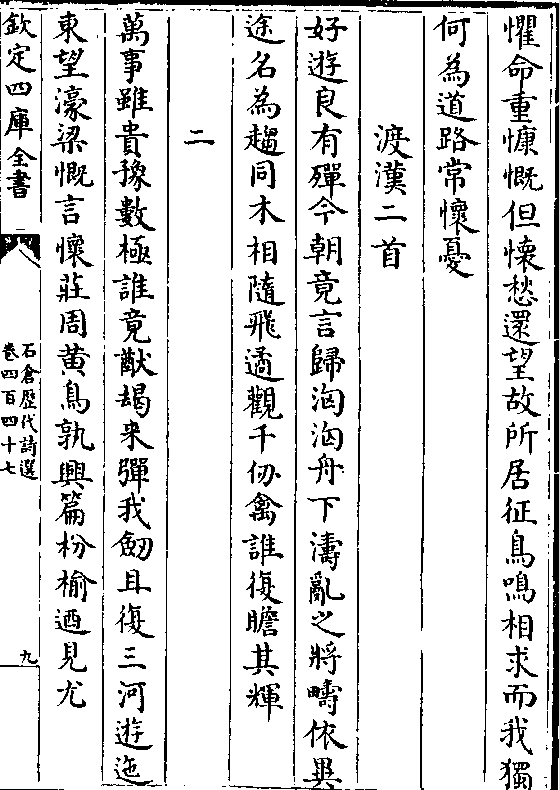 懼命重慷慨但懷愁還望故所居征鳥鳴相求而我獨
何為道路常懷憂
渡漢二首
好遊良有殫今朝竟言歸洶洶舟下濤亂之將疇依異
途名為趨同木相隨飛遹觀千仞禽誰復瞻其輝
二
萬事雖貴豫數極誰竟猷朅来彈我劒且復三河遊迤
東望濠梁慨言懷莊周黄鳥孰興篇枌榆迺見尤
欽定四庫全書
石倉歴代詩選
卷四百四十七
九